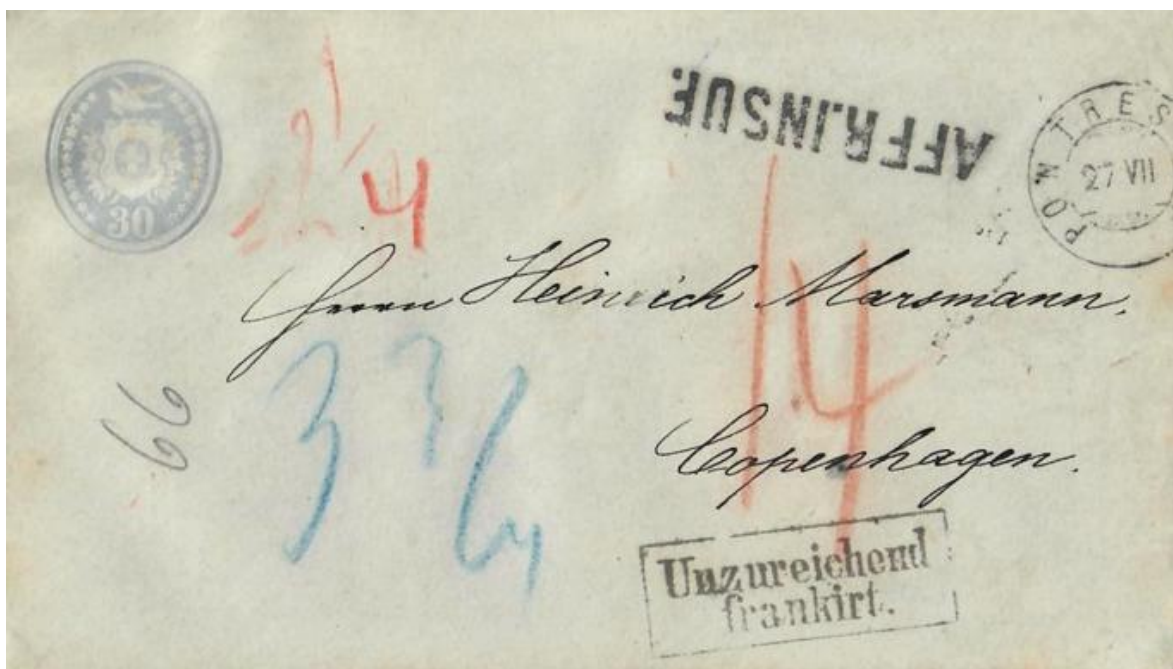 AFFR.INSUF.
PONTRES
27 VII
30
4
14
Herrn Heinrich Marsmann.
66
3
Copenhagen.
Unzureichend
frankirt.